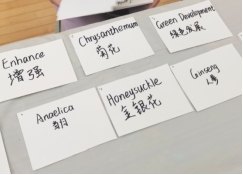 Enhance
增强
Chrysanthemum
菊花
Green Development
绿色发展
Angelica
当归
Honeysuckle
金银花
Ginseng
人参